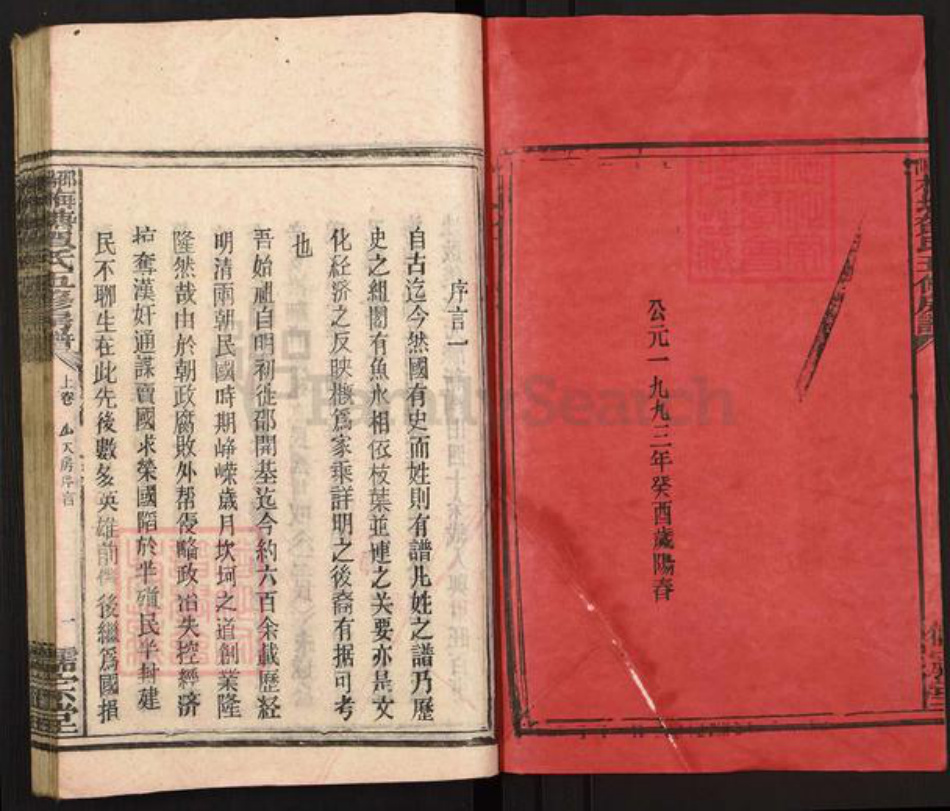 公元一九九三年癸酉歲陽春
序言一
自古迄今然國有史而姓則有譜凡姓之譜乃歷
史之組閣有魚水相依枝葉並連之关要亦是文
化経济之反映概爲家乘詳明之後裔有据可考
也
吾始祖自明初徙邵開基迄今約六百余載歷経
明清兩朝民國時期崢嶸歲月坎坷之道創業隆
隆然哉由於朝政腐敗外帮侵略政治失控經濟
掠奪漢奸通諜賣國求榮國陷於半殖民半封建
民不聊生在此先後數多英雄前 後繼爲國損
氏五修房譜
上卷
天房序言
一
儒宗堂
FamilySearch